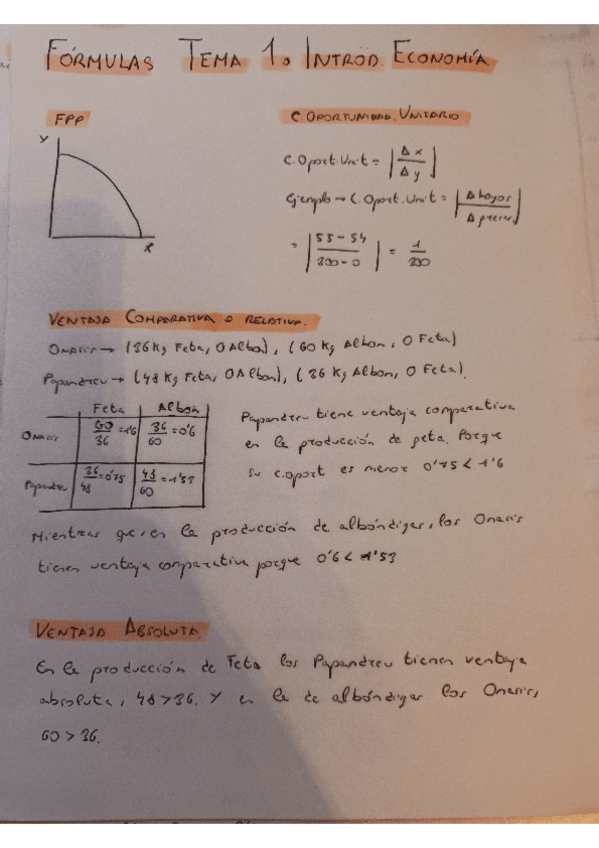 FÓRMULAS TEMA 1. INTROD. ECONOMÍA
FPP
y
x
C OPORTUNIDAD. UNITARIO
C. Oport. Unit = | Δx / Δy |
Ejemplo → C. Oport. Unit = | Δhogar / Δ |
= | 55 - 54 / 300 - 0 | = 1 / 300
VENTAJA COMPARATIVA O RELATIVA.
Onasis → (36 Kg Feta, 0 Albon), (60 Kg Albon, 0 Feta)
Papandreu → (48 Kg Feta, 0 Albon), (36 Kg Albon, 0 Feta).
Feta Albon
Onasis 60/36 = 1'6 36/60 = 0'6
Papandreu 36/48 = 0'75 48/60 = 1'53
Papandreu tiene ventaja comparativa
en la producción de feta. Porque
su c.oport es menor 0'75 < 1'6
Mientras que, en la producción de albóndigas, los Onasis
tienen ventaja comparativa porque 0'6 < 1'53
VENTAJA ABSOLUTA.
En la producción de Feta los Papandreu tienen ventaja
absoluta, 48 > 36. Y en la de albóndigas los Onasis,
60 > 36.